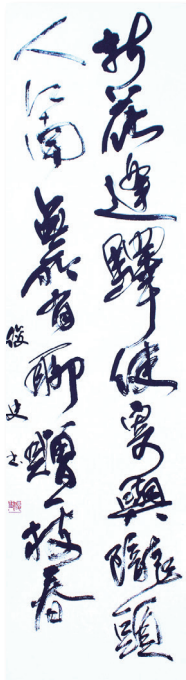 折花逢驛使寄與隴頭
人江南無所有聊贈一枝春
俊史書